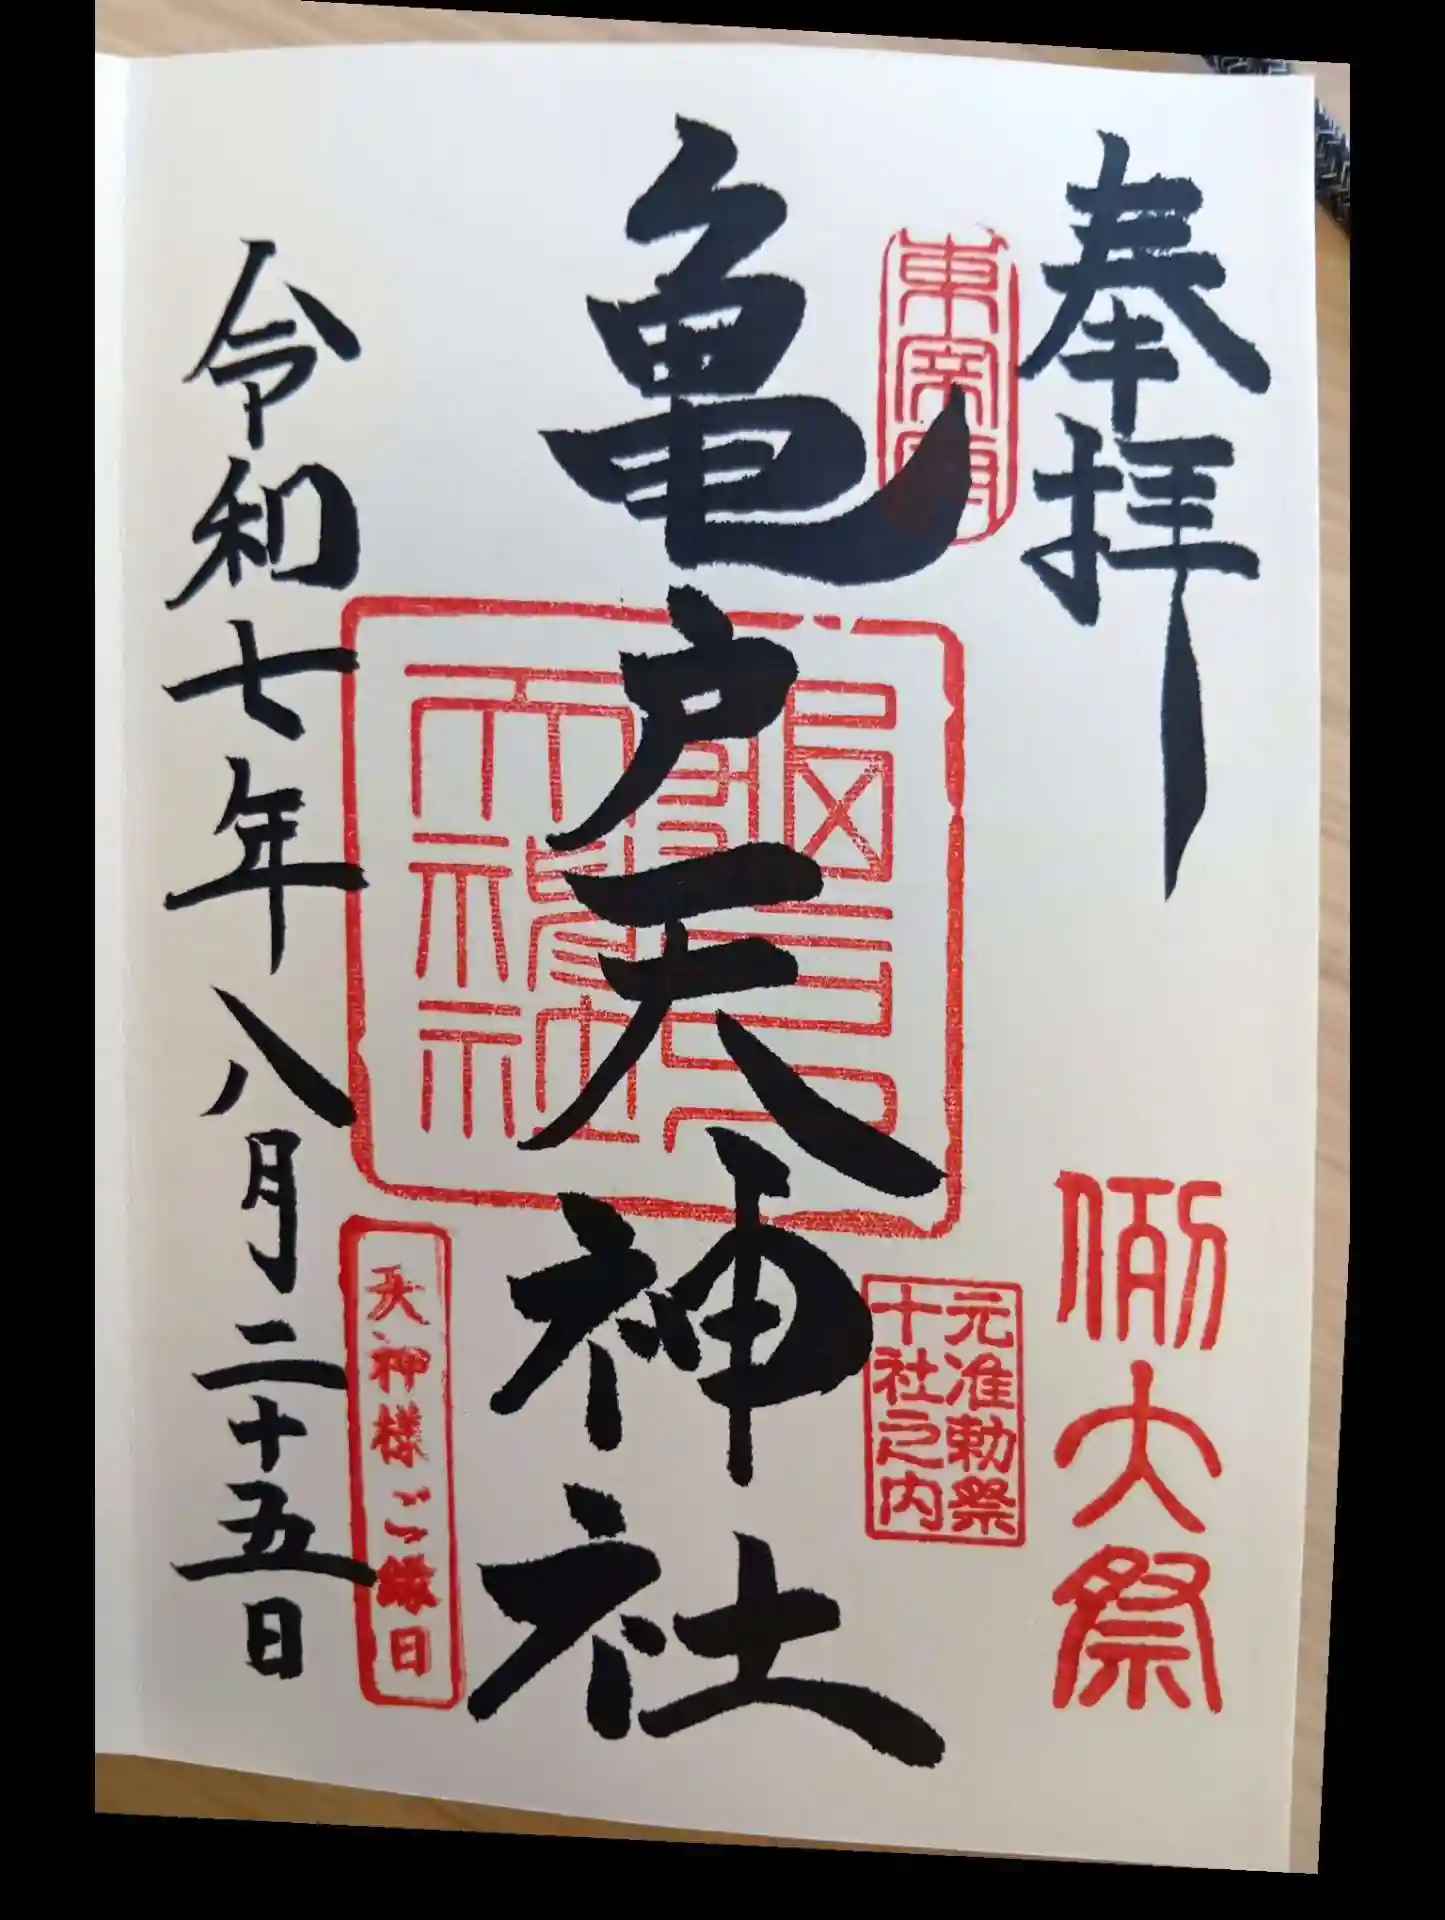 奉拝
例大祭
東宰府
元准勅祭
十社之内
亀戸天神社
天神様ご縁日
令和七年八月二十五日